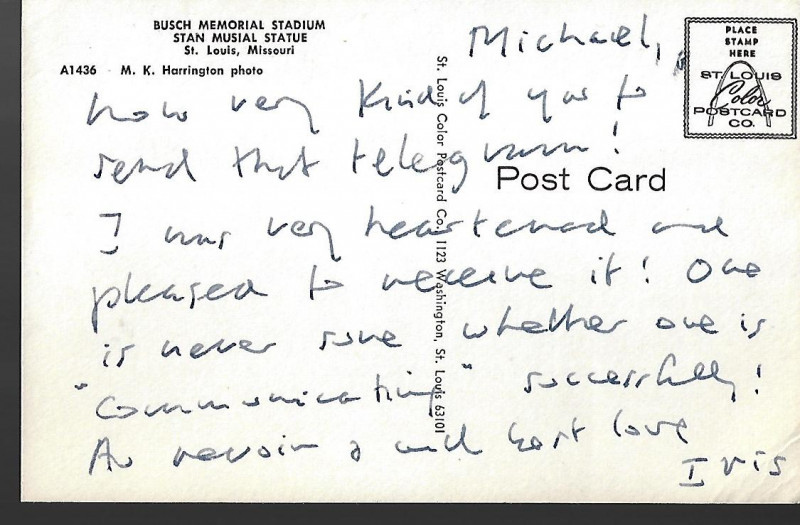 BUSCH MEMORIAL STADIUM
STAN MUSIAL STATUE
St. Louis, Missouri
A1436 M. K. Harrington photo
PLACE
STAMP
HERE
ST. LOUIS
Color
POSTCARD
CO.
Post Card
St. Louis Color Postcard Co., 1123 Washington, St. Louis 63101
Michael,
how very kind of you to
send that telegram!
I was very heartened and
pleased to receive it! One
is never sure whether one is
"communicating" successfully!
Au revoir & with best love
Iris